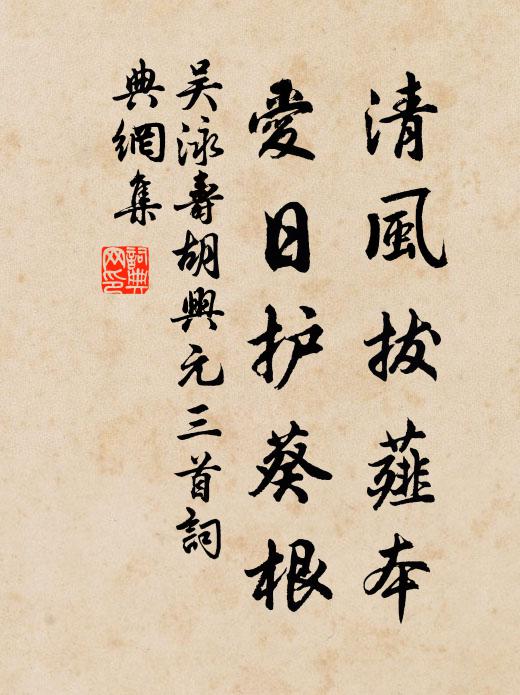 清風拔薤本
愛日护葵根
吴泳壽胡興元三首詞
典網集
詞典
网印